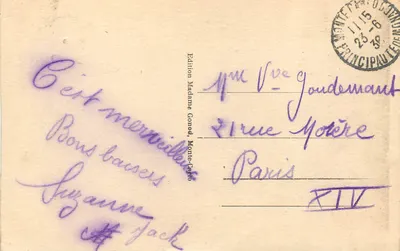 C'est merveilleux
Bons baisers
Suzanne
et Jack
Edition Madame Gonod, Monte-Carlo
MONTE CARLO CONDAMINE
11 15
23-6
38
PRINCIPAUTÉ DE MONACO
Mme Vve Goudemant
21 rue
Paris
XIV